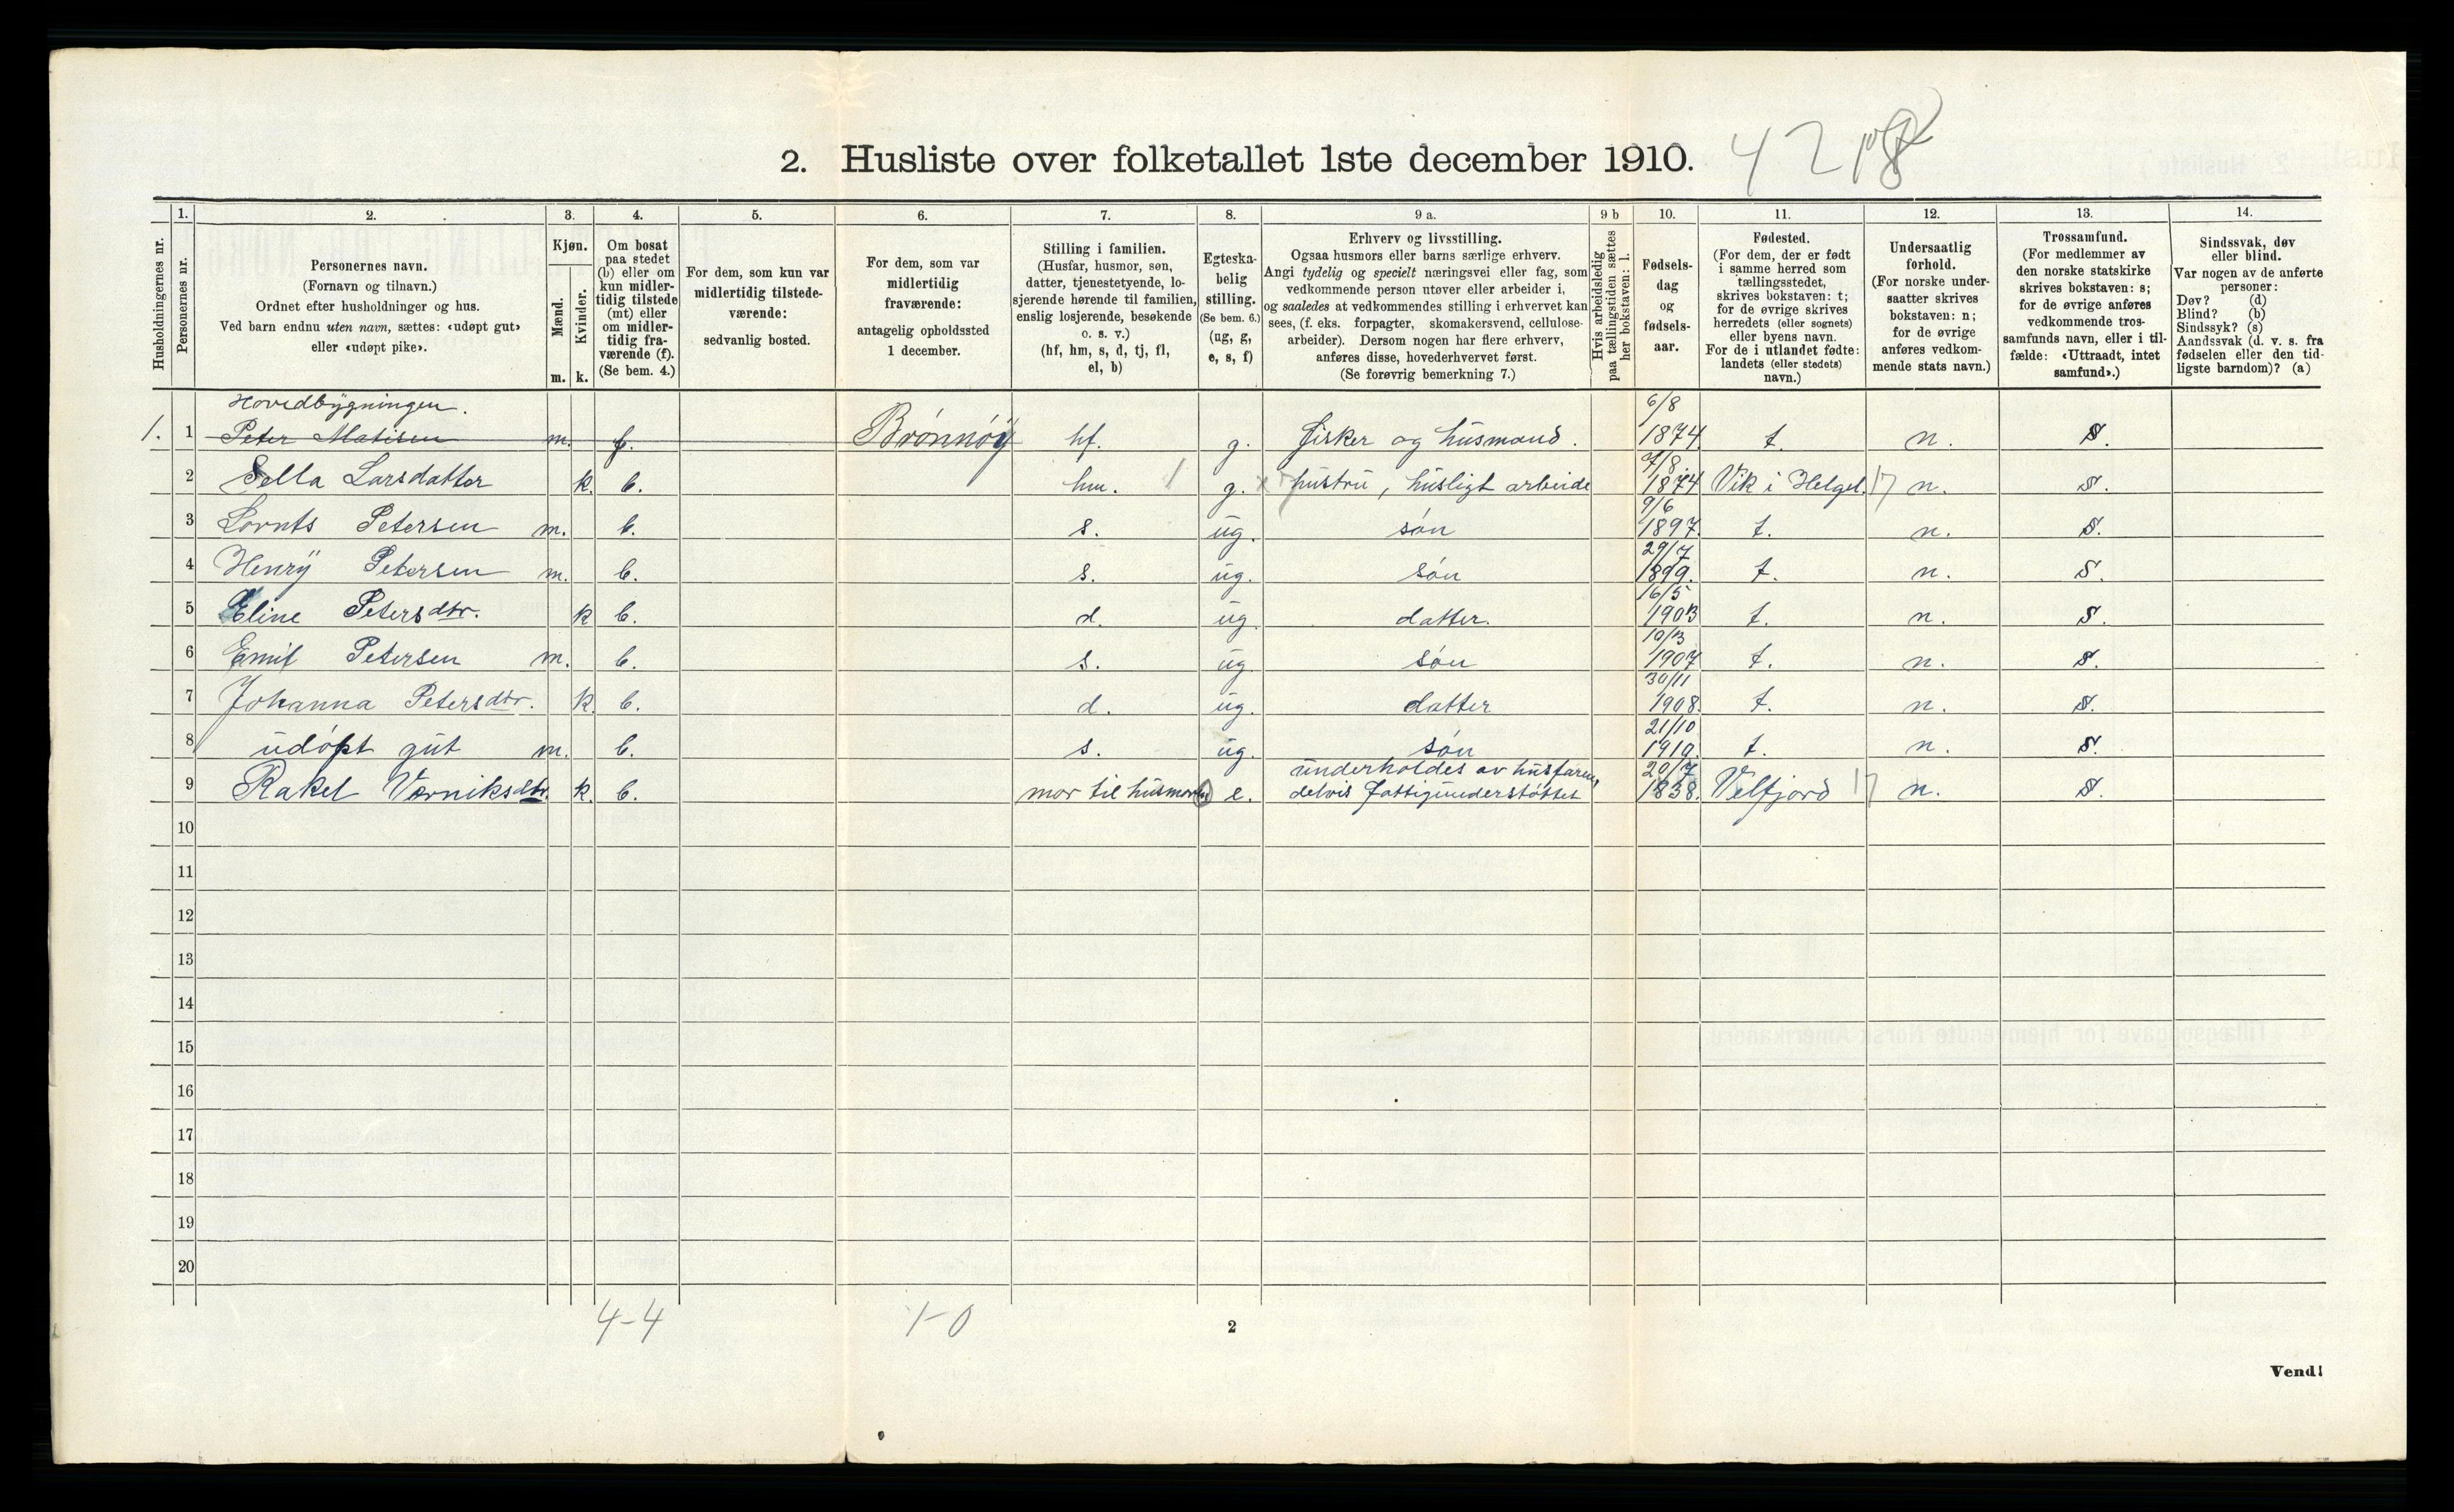 2. Husliste over folketallet 1ste december 1910.
42
1. 2. 3. 4. 5. 6. 7. 8. 9 a. 9 b 10. 11. 12. 13. 14.
Husholdningernes nr.
Personernes nr.
Personernes navn.
(Fornavn og tilnavn.)
Ordnet efter husholdninger og hus.
Ved barn endnu uten navn, sættes: «udøpt gut»
eller «udøpt pike».
Kjøn.
Mænd.
Kvinder.
m. k.
Om bosat
paa stedet
(b) eller om
kun midler-
tidig tilstede
(mt) eller
om midler-
tidig fra-
værende (f).
(Se bem. 4.)
For dem, som kun var
midlertidig tilstede-
værende:
sedvanlig bosted.
For dem, som var
midlertidig
fraværende:
antagelig opholdssted
1 december.
Stilling i familien.
(Husfar, husmor, søn,
datter, tjenestetyende, lo-
sjerende hørende til familien,
enslig losjerende, besøkende
o. s. v.)
(hf, hm, s, d, tj, fl,
el, b)
Egteska-
belig
stilling.
(Se bem. 6.)
(ug, g,
e, s, f)
Erhverv og livsstilling.
Ogsaa husmors eller barns særlige erhverv.
Angi tydelig og specielt næringsvei eller fag, som
vedkommende person utøver eller arbeider i,
og saaledes at vedkommendes stilling i erhvervet kan
sees, (f. eks. forpagter, skomakersvend, cellulose-
arbeider). Dersom nogen har flere erhverv,
anføres disse, hovederhvervet først.
(Se forøvrig bemerkning 7.)
Hvis arbeidsledig
paa tællingstiden sættes
her bokstaven: l.
Fødsels-
dag
og
fødsels-
aar.
Fødested.
(For dem, der er født
i samme herred som
tællingsstedet,
skrives bokstaven: t;
for de øvrige skrives
herredets (eller sognets)
eller byens navn.
For de i utlandet fødte:
landets (eller stedets)
navn.)
Undersaatlig
forhold.
(For norske under-
saatter skrives
bokstaven: n;
for de øvrige
anføres vedkom-
mende stats navn.)
Trossamfund.
(For medlemmer av
den norske statskirke
skrives bokstaven: s;
for de øvrige anføres
vedkommende tros-
samfunds navn, eller i til-
fælde: «Uttraadt, intet
samfund».)
Sindssvak, døv
eller blind.
Var nogen av de anførte
personer:
Døv? (d)
Blind? (b)
Sindssyk? (s)
Aandssvak (d. v. s. fra
fødselen eller den tid-
ligste barndom)? (a)
Hovedbygningen. 6/8
1. 1 Peter Matisen m. f. Brønnøy hf. g. fisker og husmand. 1874 t. n. s.
7/8
2 Sella Larsdatter k. b. hm. g. hustru, husligt arbeide 1874 Vik i Helgel. 17 n. s.
9/6
3 Lornts Petersen m. b. s. ug. søn 1897 t. n. s.
29/7
4 Henry Petersen m. b. s. ug. søn 1899. t. n. s.
16/5
5 Eline Petersdtr. k b. d. ug. datter. 1903 t. n. s.
10/3
6 Emil Petersen m. b. s. ug. søn 1907 t. n. s.
30/11
7 Johanna Petersdtr. k. b. d. ug. datter 1908. t. n. s.
21/10
8 udøpt gut m. b. s. ug. søn 1910. t. n. s.
underholdes av husfaren, 20/7
9 Rakel Værniksdtr. k. b. mor til husmoren e. delvis fattigunderstøttet 1838. Velfjord 17 n. s.
10
11
12
13
14
15
16
17
18
19
20
4-4 1-0
2
Vend!